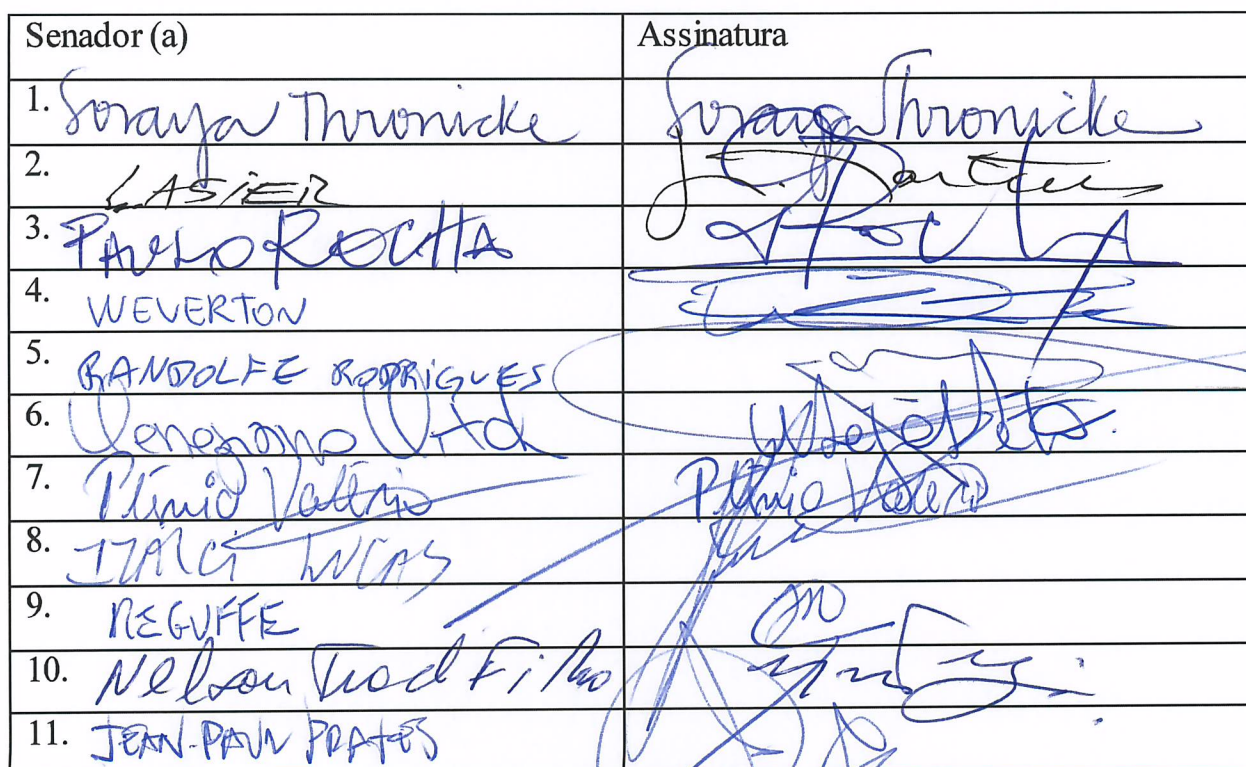 Senador (a) Assinatura
1. Soraya Thronicke Soraya Thronicke
2. LASIER
3. PAULO ROCHA
4. WEVERTON
5. RANDOLFE RODRIGUES
6. Veneziano Vital
7. Plínio Valério Plínio Valério
8. IZALCI LUCAS
9. REGUFFE
10. Nelson Trad Filho
11. JEAN-PAUL PRATES